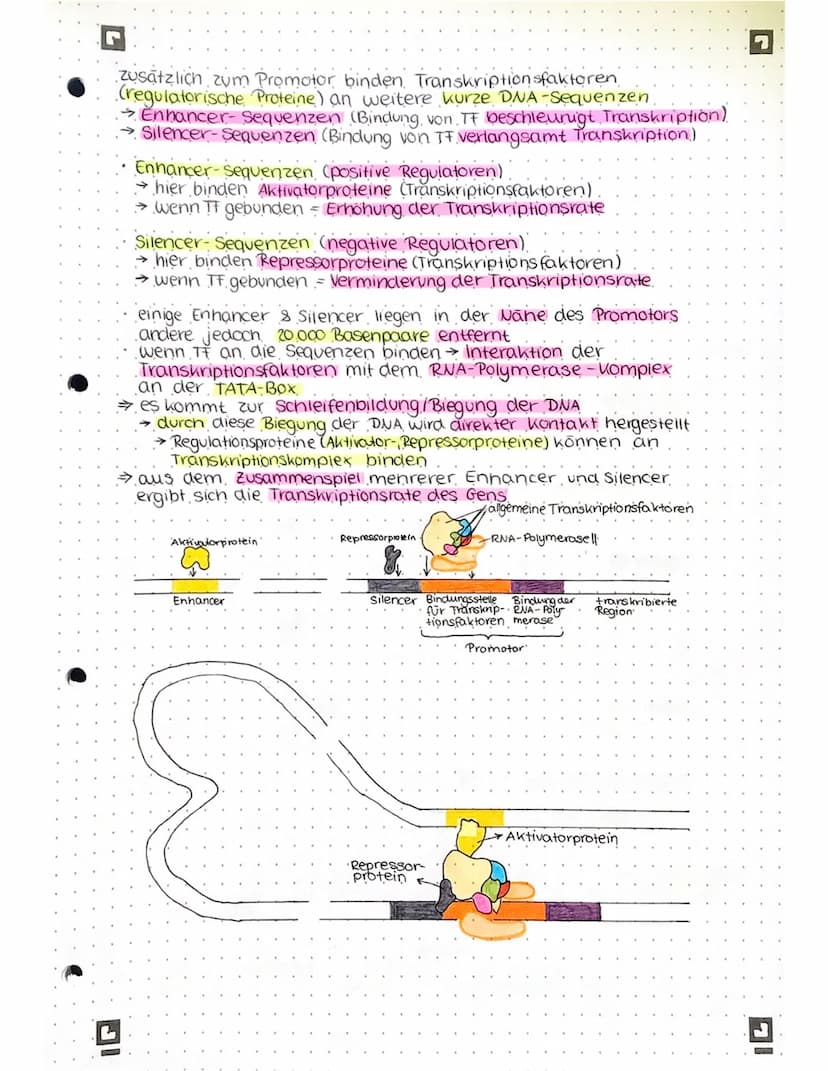 zusätzlich zum Promotor binden Transkriptionsfaktoren
(regulatorische Proteine) an weitere kurze DNA-Sequenzen
→ Enhancer-Sequenzen (Bindung von TF beschleunigt Transkription)
→ Silencer-Sequenzen (Bindung von TF verlangsamt Transkription)
· Enhancer-Sequenzen (positive Regulatoren)
→ hier binden Aktivatorproteine (Transkriptionsfaktoren)
→ wenn TF gebunden = Erhöhung der Transkriptionsrate
· Silencer-Sequenzen (negative Regulatoren)
→ hier binden Repressorproteine (Transkriptionsfaktoren)
→ wenn TF gebunden = Verminderung der Transkriptionsrate
· einige Enhancer & Silencer liegen in der Nähe des Promotors
andere jedoch 20.000 Basenpaare entfernt
· wenn TF an die Sequenzen binden → Interaktion der
Transkriptionsfaktoren mit dem RNA-Polymerase-Komplex
an der TATA-Box
⇒ es kommt zur Schleifenbildung/Biegung der DNA
→ durch diese Biegung der DNA wird direkter Kontakt hergestellt
→ Regulationsproteine (Aktivator-, Repressorproteine) können an
Transkriptionskomplex binden
⇒ aus dem Zusammenspiel mehrerer Enhancer und Silencer
ergibt sich die Transkriptionsrate des Gens
allgemeine Transkriptionsfaktoren
Aktivatorprotein
Repressorprotein
RNA-Polymerase II
Enhancer
Silencer
Bindungsstelle
für Transkrip-
tionsfaktoren
Bindung der
RNA-Poly-
merase
transkribierte
Region
Promotor
Aktivatorprotein
Repressor-
protein